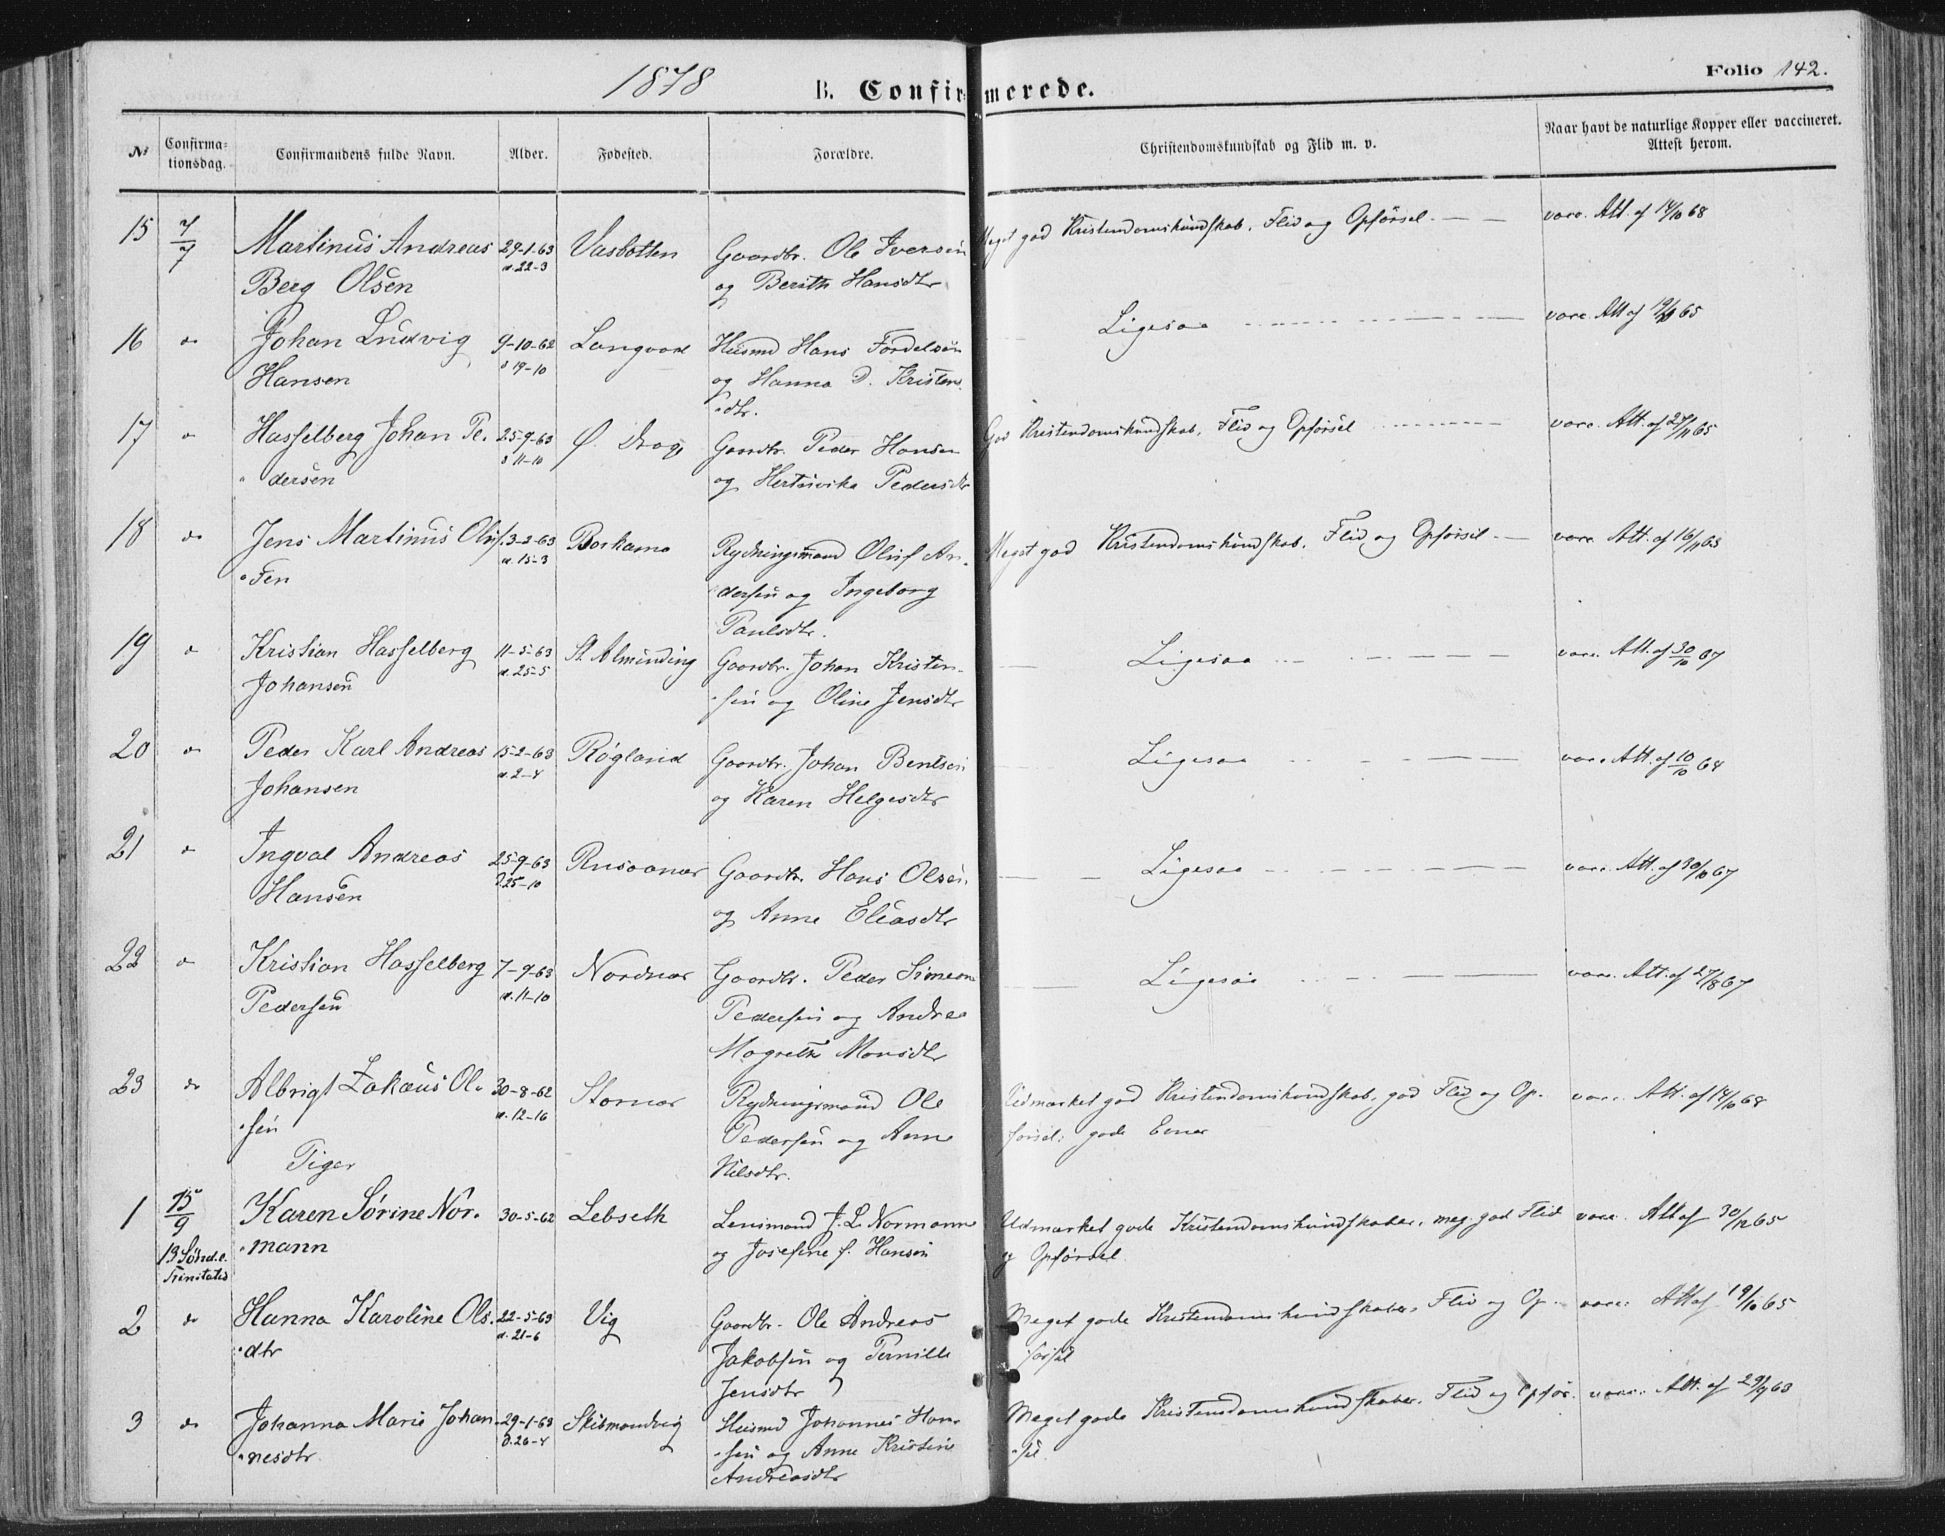 1878
B. Confirmerede.
Folio 142.
No
Confirmationsdag.
Confirmandens fulde Navn.
Alder.
Fødested.
Forældre.
Christendomskundskab og Flid m. v.
Naar havt de naturlige Kopper eller vaccineret.
Attest herom.
15 7/7 Martinus Andreas 29-1-63 Vasbotten Gaardbr. Ole Iversen Meget god Kristendomskundskab, Flid og Opførsel. vacc. Att. af 14/10 68
Berg Olsen d. 22-3 og Berith Hansdtr
16 do Johan Ludvig 9-10-62 Langvad Husmd Hans Fordelsen Ligesaa vacc. Att af 19/10 65
Hansen d 19-10 og Hanna D. Kristens
dtr.
17 do Hasselberg Johan Pe- 25-9-63 Ø. Drag Gaardbr. Peder Hansen God Kristendomskundskab, Flid og Opførsel vacc. Att. af 27/11 65
dersen d 11-10 og Pedersdtr
18 do Jens Martinus Oluf 13-2-63 Borkamo Rydningsmand Oluf An- Meget god Kristendomskundskab, Flid og Opførsel vacc. Att. af 16/11 63
sen d. 15-3 dersen og Ingeborg
Paulsdtr.
19 do Kristian Hasselberg 11-5-63 St. Alminding Gaardbr. Johan Kristen- Ligesaa vacc. Att. af 30/10 67
Johansen d. 25-5 sen og Oline Jensdtr
20 do Peder Karl Andreas 15-2-63 Røgland Gaardbr. Johan Bentsen Ligesaa vacc. Att. af 10/10 64
Johansen d. 2-4 og Karen Helgesdtr
21 do Ingval Andreas 25-9-63 Gaardbr. Hans Olsen Ligesaa vacc. Att. af 30/10 67
Hansen d 25-10 og Anne Eliasdtr
22 do Kristian Hasselberg 7-9-63 Nordnæs Gaardbr. Peder Simeon Ligesaa vacc. Att. af 27/8 67
Pedersen d. 11-10 Pedersen og Andrea
Magreth Monsdtr
23 do Albrigt Zakæus Ol- 30-8-62 Stornæs Rydningsmand Ole Udmærket god Kristendomskundskab, god Flid og Op- vacc. Att. af 14/10 68
sen d. 12-16 Pedersen og Anne førsel; gode Evner
Nilsdtr.
Piger
1 15/9 Karen Sørine Nor- 30-5-62 Lebseth Lensmand J. L. Normann Udmærket gode Kristendomskundskaber, meg. god Flid vacc. Att af 30/12 65
13 Sønd. e. mann og Josefine f. Hansen og Opførsel.
Trinitatis
2 do Hanna Karoline Ols- 22-5-63 Vig Gaardbr. Ole Andreas Meget gode Kristendomskundskaber, Flid og Op- vacc. Att af 19/10 65
dtr d. 21-6 Jakobsen og Pernille førsel
Jensdtr
3 do Johanna Marie Johan- 29-1-63 Skibmandvig Husmd Johannes Han- Meget gode Kristendomskundskaber, Flid og Opfør- vacc. Att. af 29/9 63
nesdtr. d. 26-4 sen og Anne Kristine sel.
Andreasdtr